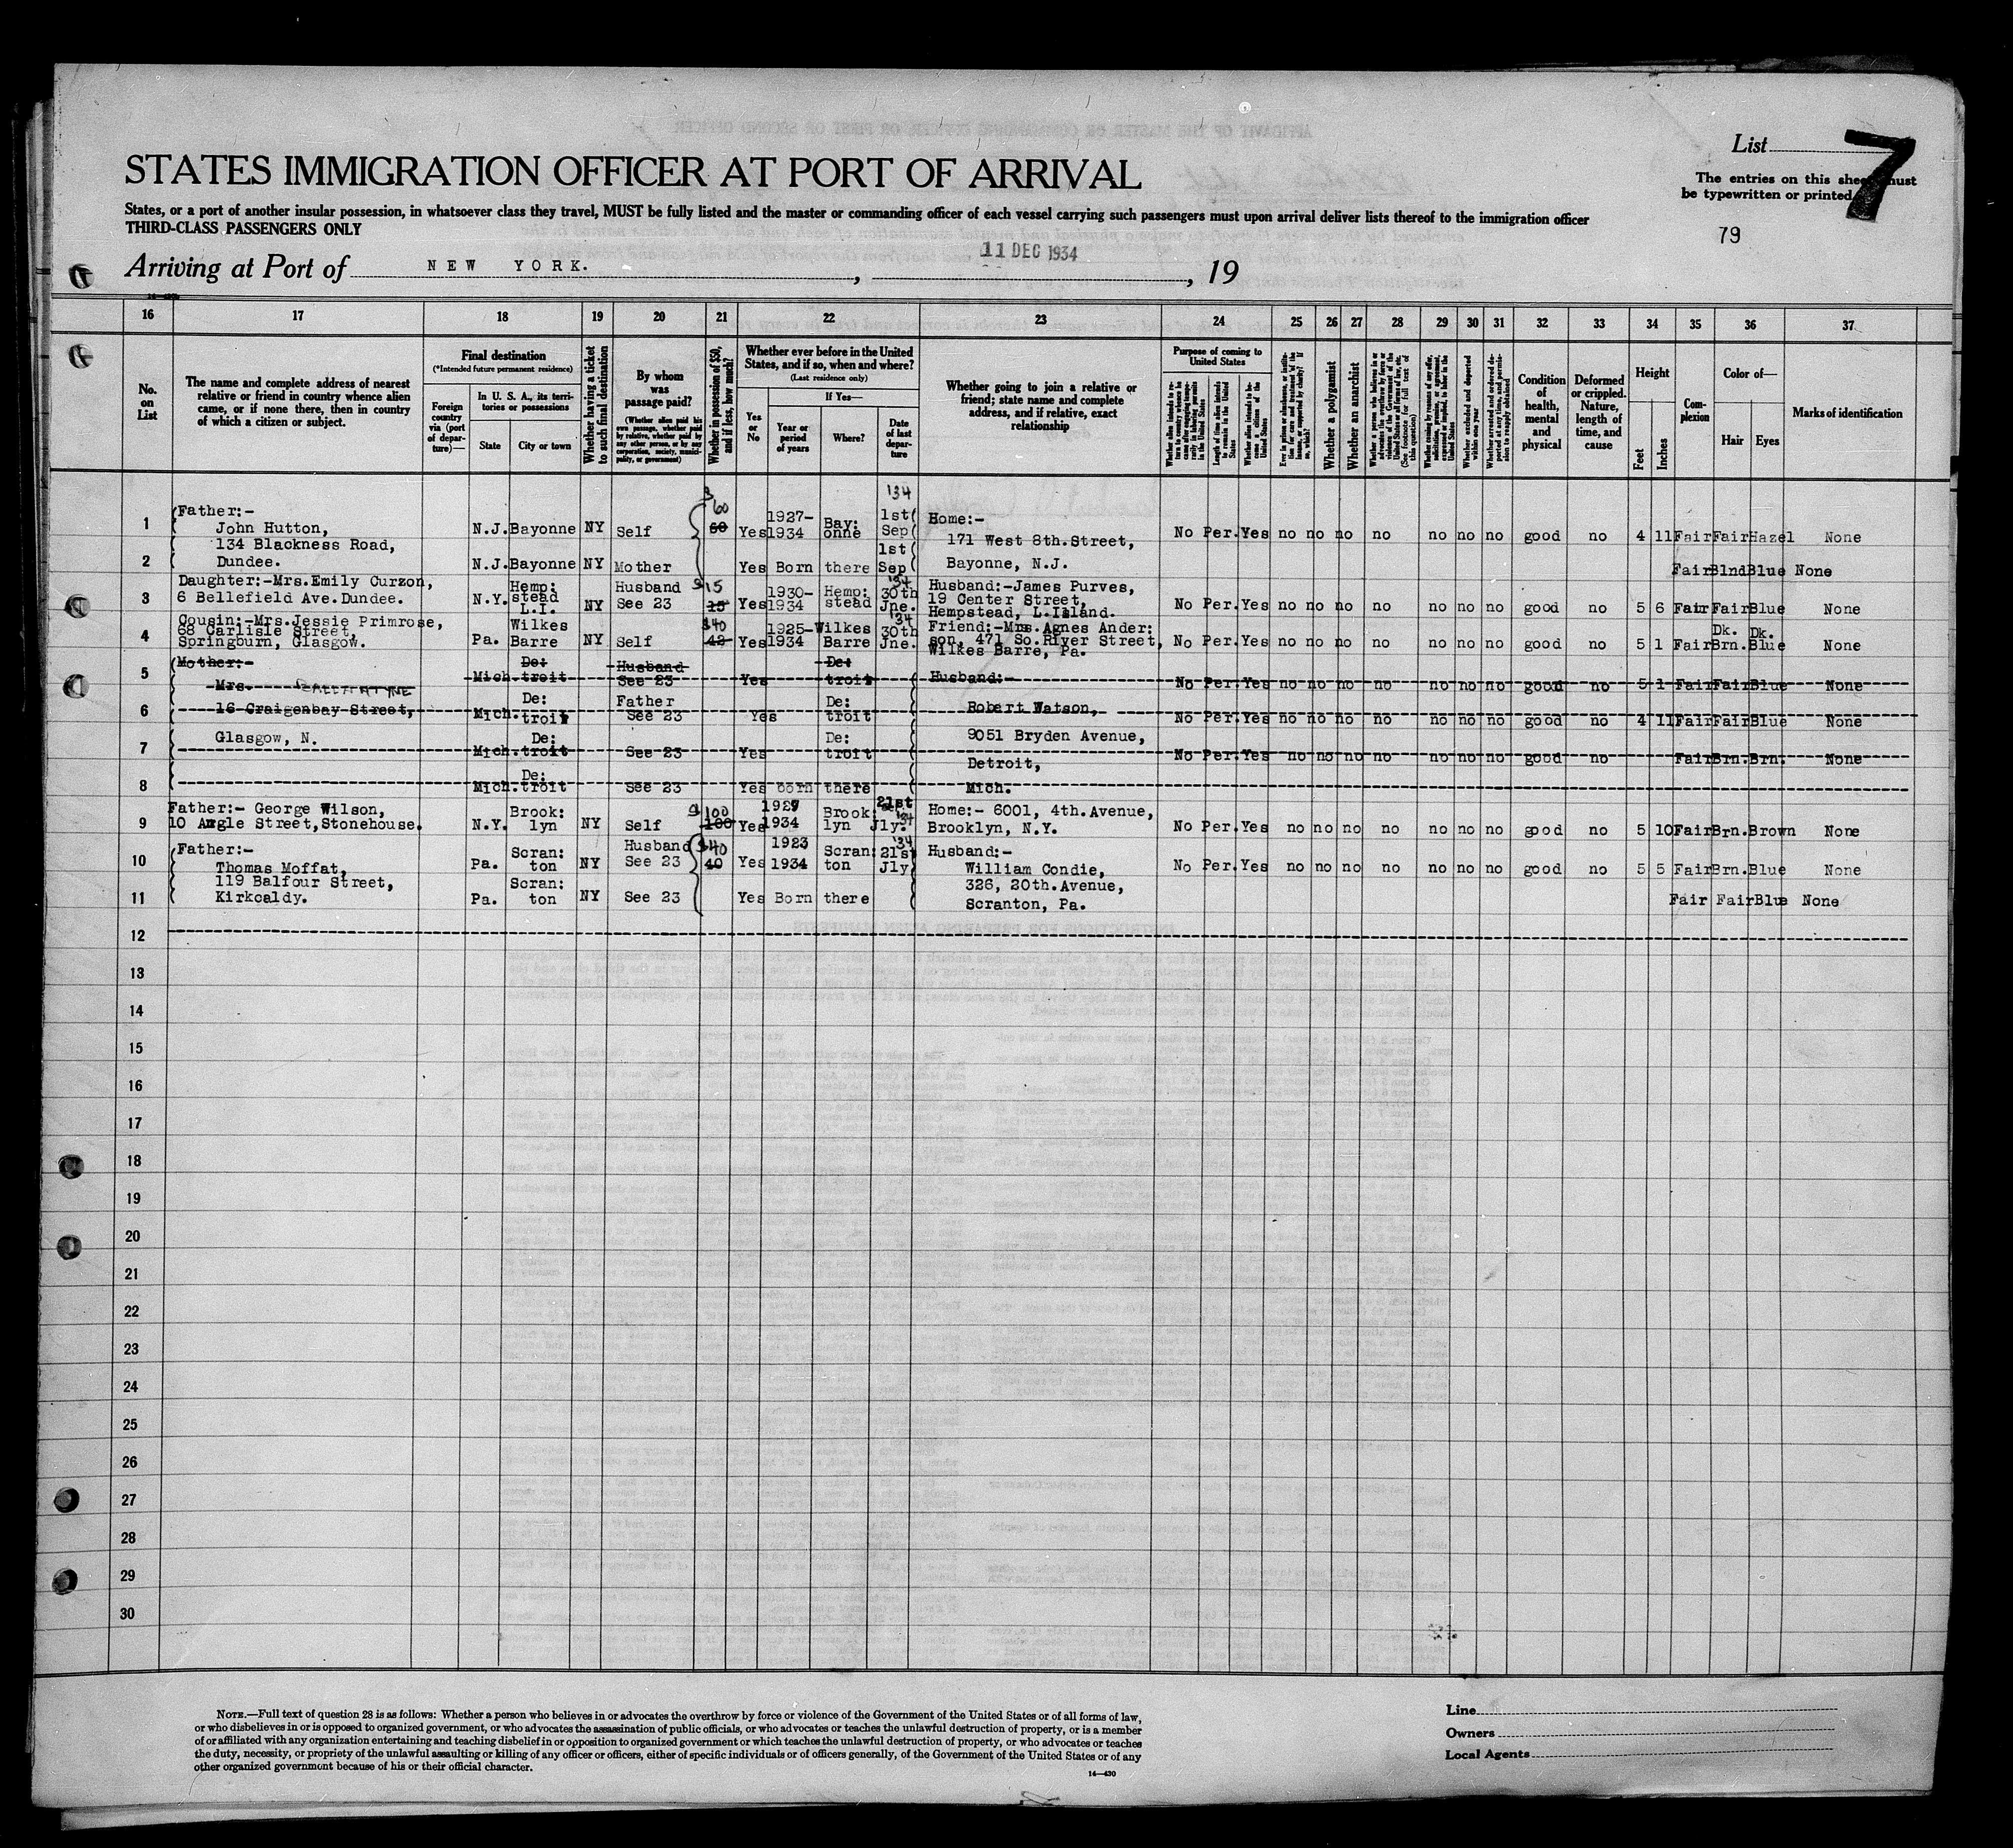 List 7
STATES IMMIGRATION OFFICER AT PORT OF ARRIVAL
The entries on this sheet must
be typewritten or printed
States, or a port of another insular possession, in whatsoever class they travel, MUST be fully listed and the master or commanding officer of each vessel carrying such passengers must upon arrival deliver lists thereof to the immigration officer
THIRD-CLASS PASSENGERS ONLY
79
Arriving at Port of NEW YORK. , 11 DEC 1934 , 19
16 17 18 19 20 21 22 23 24 25 26 27 28 29 30 31 32 33 34 35 36 37
No. on List
The name and complete address of nearest relative or friend in country whence alien came, or if none there, then in country of which a citizen or subject.
Final destination
(*Intended future permanent residence)
Foreign country via (port of departure)—
In U. S. A., its territories or possessions
State
City or town
Whether having a ticket to such final destination
By whom was passage paid?
(Whether alien paid his own passage, whether paid by relative, whether paid by any other person, or by any corporation, society, municipality, or government)
Whether in possession of $50, and if less, how much?
Whether ever before in the United States, and if so, when and where?
(Last residence only)
Yes or No
If Yes—
Year or period of years
Where?
Date of last departure
Whether going to join a relative or friend; state name and complete address, and if relative, exact relationship
Purpose of coming to United States
Length of time alien intends to remain in the United States
Whether alien intends to become a citizen of the United States
Whether a polygamist
Whether an anarchist
Condition of health, mental and physical
Deformed or crippled. Nature, length of time, and cause
Height
Feet
Inches
Complexion
Color of—
Hair
Eyes
Marks of identification
1 Father:- John Hutton, N.J. Bayonne NY Self $ 60 60 Yes 1927-1934 Bay:onne '34 1st Sep Home:- 171 West 8th.Street, No Per. Yes no no no no no no no good no 4 11 Fair Fair Hazel None
2 134 Blackness Road, Dundee. N.J. Bayonne NY Mother Yes Born there 1st Sep Bayonne, N.J. Fair Blnd Blue None
3 Daughter:-Mrs.Emily Curzon, 6 Bellefield Ave.Dundee. N.Y. Hemp:stead L.I. NY Husband See 23 $15 15 Yes 1930-1934 Hemp:stead '34 30th Jne. Husband:-James Purves, 19 Center Street, Hempstead, L.Island. No Per. Yes no no no no no no no good no 5 6 Fair Fair Blue None
4 Cousin:-Mrs.Jessie Primrose, 68 Carlisle Street, Springburn, Glasgow. Pa. Wilkes Barre NY Self $40 Yes 1925-1934 Wilkes Barre '34 30th Jne. Friend:-Mrs.Agnes Ander:son, 471 So.River Street, Wilkes Barre, Pa. No Per. Yes no no no no no no no good no 5 1 Fair Dk. Brn. Dk. Blue None
5 Mother:- Mrs. Mich. De:troit Husband See 23 Yes De:troit Husband:- No Per. Yes no no no no no no no good no 5 1 Fair Fair Blue None
6 16 Craigenbay Street, Mich. De:troit Father See 23 Yes De:troit Robert Watson, No Per. Yes no no no no no no no good no 4 11 Fair Fair Blue None
7 Glasgow, N. Mich. De:troit See 23 Yes De:troit 9051 Bryden Avenue, No Per. Yes no no no no no no no good no Fair Brn. Brn. None
8 Mich. De:troit See 23 Yes born there Detroit, Mich.
9 Father:- George Wilson, 10 Argle Street,Stonehouse. N.Y. Brook:lyn NY Self $100 100 Yes 1927 1934 Brook:lyn 21st Jly. '34 Home:- 6001, 4th.Avenue, Brooklyn, N.Y. No Per. Yes no no no no no no no good no 5 10 Fair Brn. Brown None
10 Father:- Thomas Moffat, Pa. Scran:ton NY Husband See 23 $40 40 Yes 1923 1934 Scran:ton '34 21st Jly Husband:- William Condie, No Per. Yes no no no no no no no good no 5 5 Fair Brn. Blue None
11 119 Balfour Street, Kirkcaldy. Pa. Scran:ton NY See 23 Yes Born there 326, 20th.Avenue, Scranton, Pa. Fair Fair Blue None
12
13
14
15
16
17
18
19
20
21
22
23
24
25
26
27
28
29
30
NOTE.—Full text of question 28 is as follows: Whether a person who believes in or advocates the overthrow by force or violence of the Government of the United States or of all forms of law,
or who disbelieves in or is opposed to organized government, or who advocates the assassination of public officials, or who advocates or teaches the unlawful destruction of property, or is a member
of or affiliated with any organization entertaining and teaching disbelief in or opposition to organized government or which teaches the unlawful destruction of property, or who advocates or teaches
the duty, necessity, or propriety of the unlawful assaulting or killing of any officer or officers, either of specific individuals or of officers generally, of the Government of the United States or of any
other organized government because of his or their official character.
14—430
Line
Owners
Local Agents